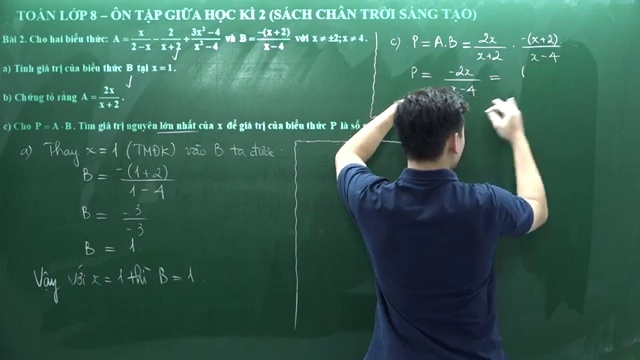 TOÁN LỚP 8 – ÔN TẬP GIỮA HỌC KÌ 2 (SÁCH CHÂN TRỜI SÁNG TẠO)
Bài 2. Cho hai biểu thức: A = x/(2−x) − 2/(x+2) + (3x²−4)/(x²−4) và B = −(x+2)/(x−4) với x ≠ ±2; x ≠ 4.
a) Tính giá trị của biểu thức B tại x = 1.
b) Chứng tỏ rằng A = 2x/(x+2).
c) Cho P = A · B. Tìm giá trị nguyên lớn nhất của x để giá trị của biểu thức P là số
a) Thay x = 1 (TMĐK) vào B ta được.
B = −(1+2)/(1−4)
B = −3/−3
B = 1.
Vậy với x = 1 thì B = 1.
c) P = A.B = 2x/(x+2) . −(x+2)/(x−4)
P = −2x/(x−4) = (